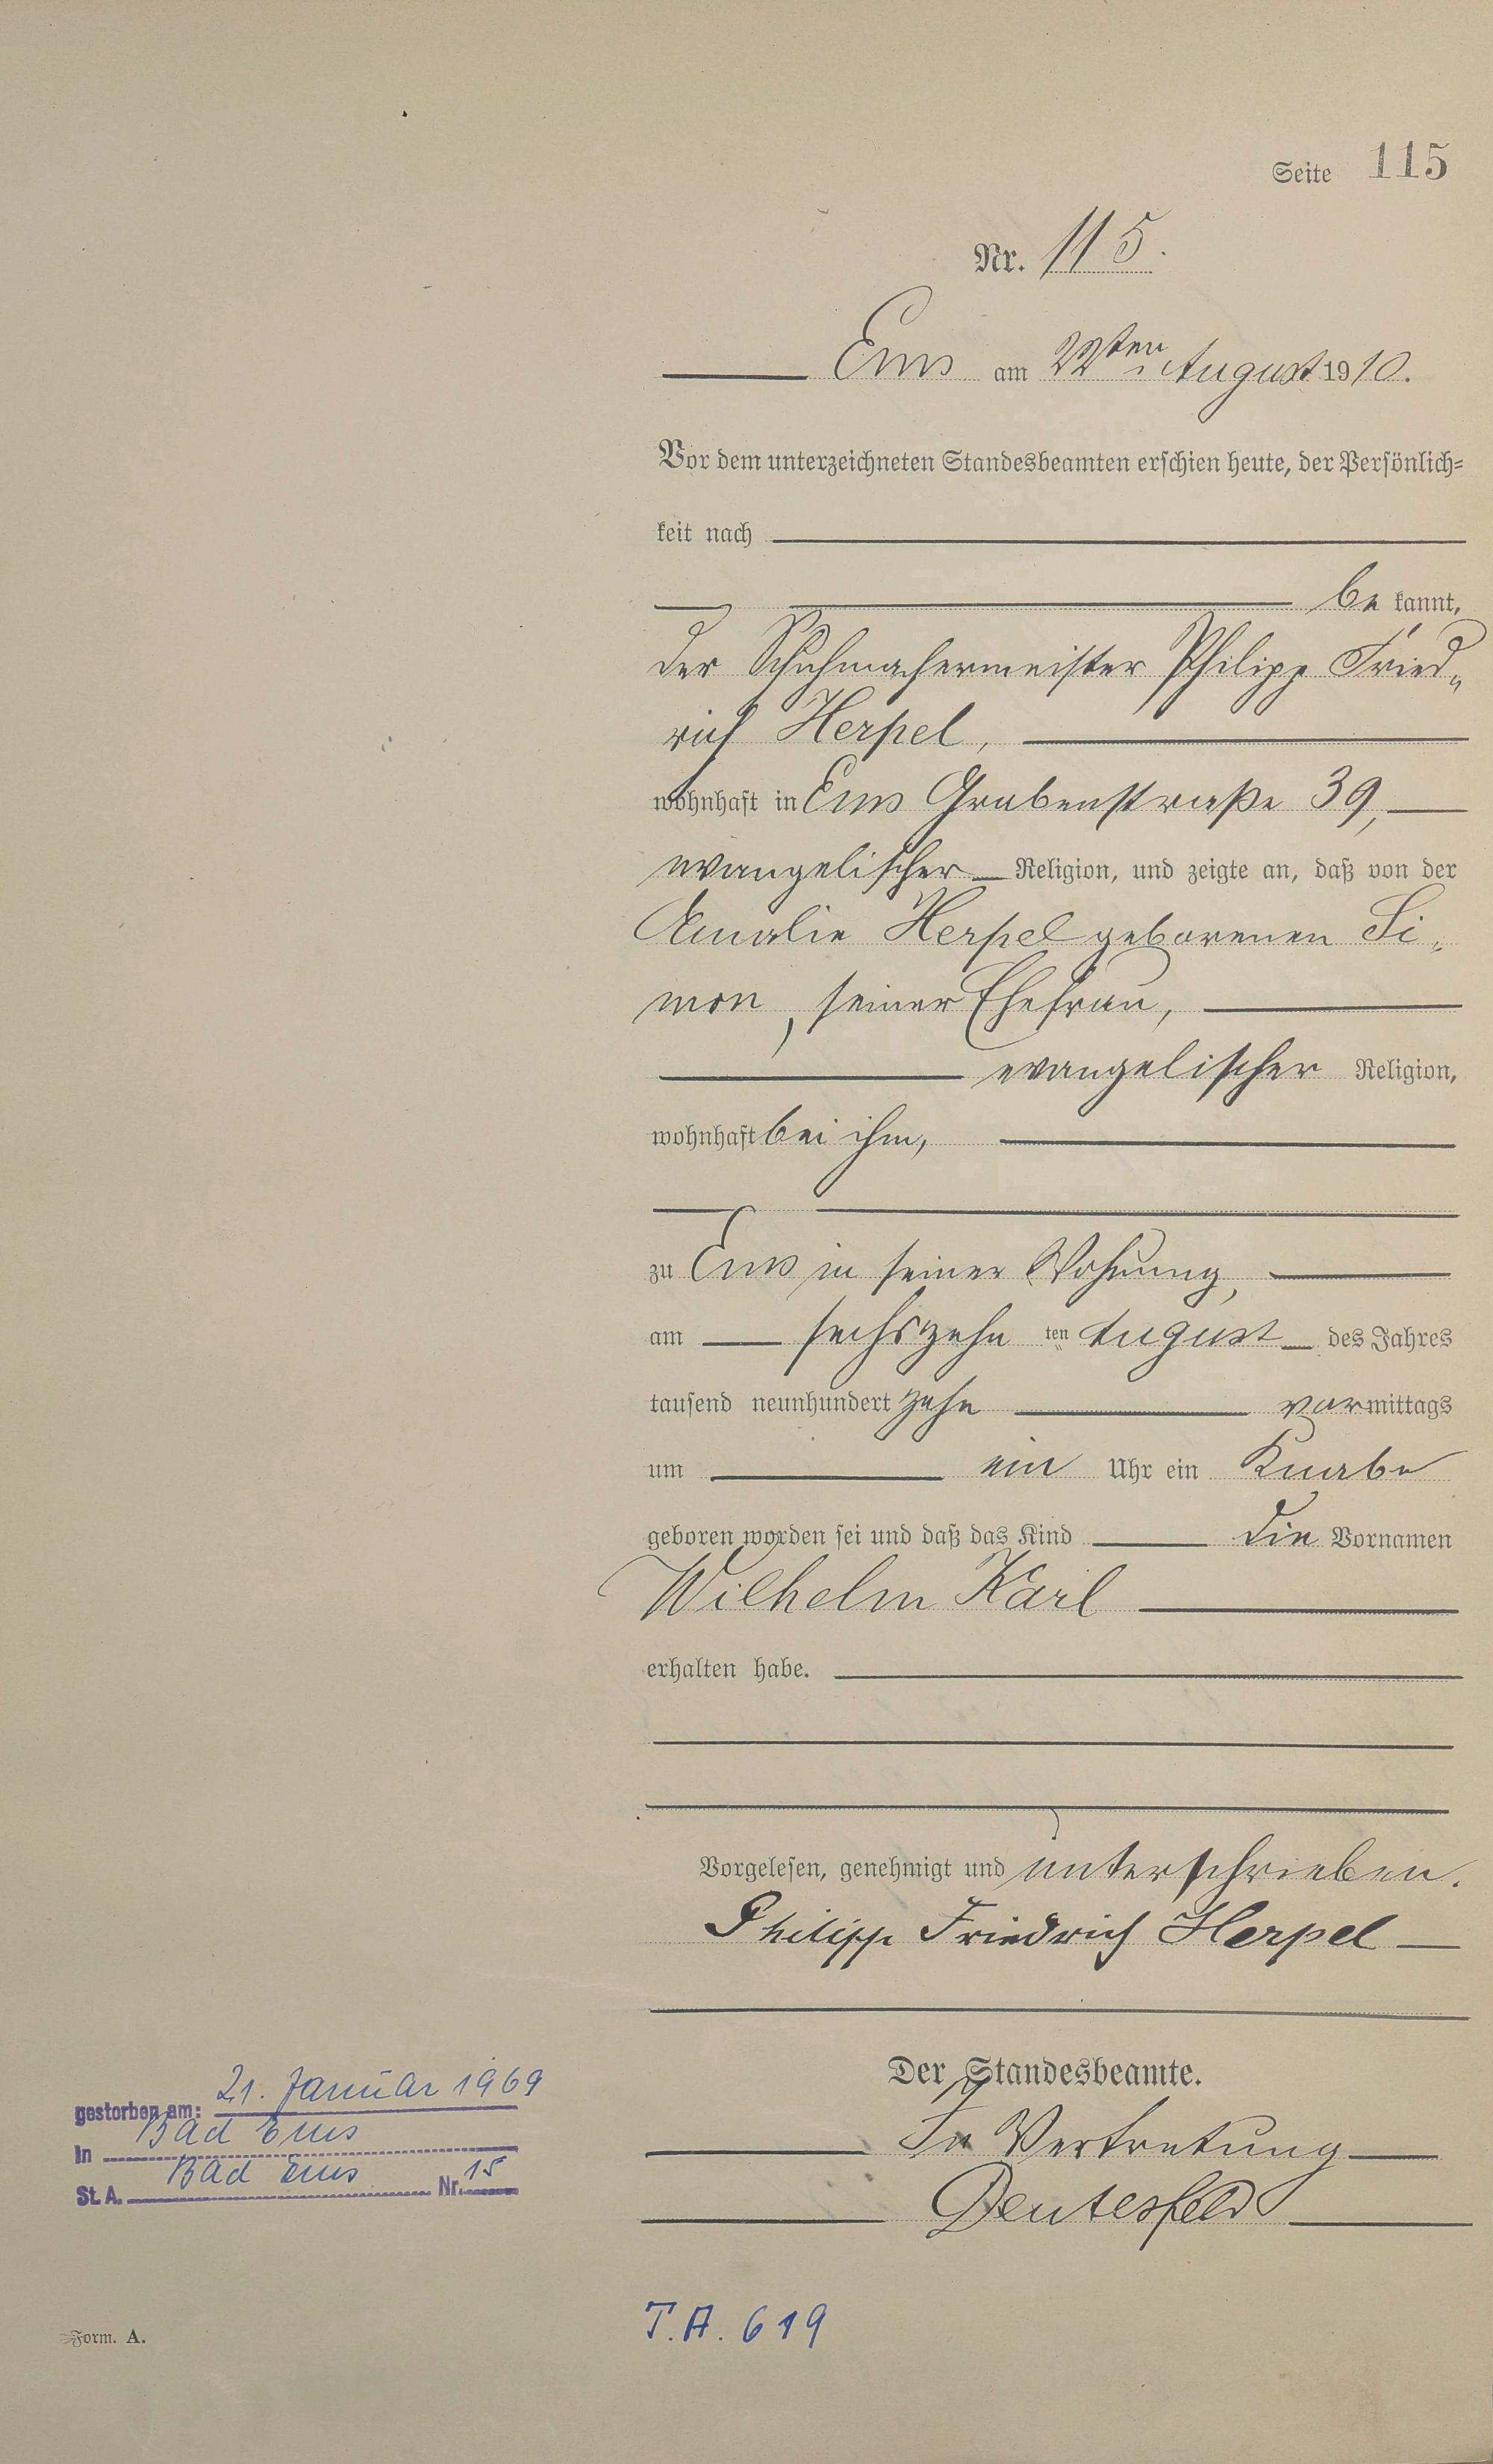 Seite 115
Nr. 115.
Ems am 22ten August 1910.
Vor dem unterzeichneten Standesbeamten erschien heute, der Persönlich=
keit nach
be kannt,
der Schuhmachermeister Philipp Fried„
rich Herpel,
wohnhaft in Ems Grabenstraße 39,
evangelischer Religion, und zeigte an, daß von der
Amalie Herpel geborenen Si„
mon, seiner Ehefrau,
evangelischer Religion,
wohnhaft bei ihm,
zu Ems in seiner Wohnung,
am sechszehn ten August des Jahres
tausend neunhundert zehn vormittags
um ein Uhr ein Knabe
geboren worden sei und daß das Kind die Vornamen
Wilhelm Karl
erhalten habe.
Vorgelesen, genehmigt und unterschrieben.
Philipp Friedrich Herpel
Der Standesbeamte.
In Vertretung
gestorben am: 21. Januar 1969
In Bad Ems
St. A. Bad Ems Nr. 15
T.A. 619
Form. A.